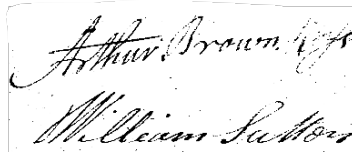 Arthur Brown
William Sutton